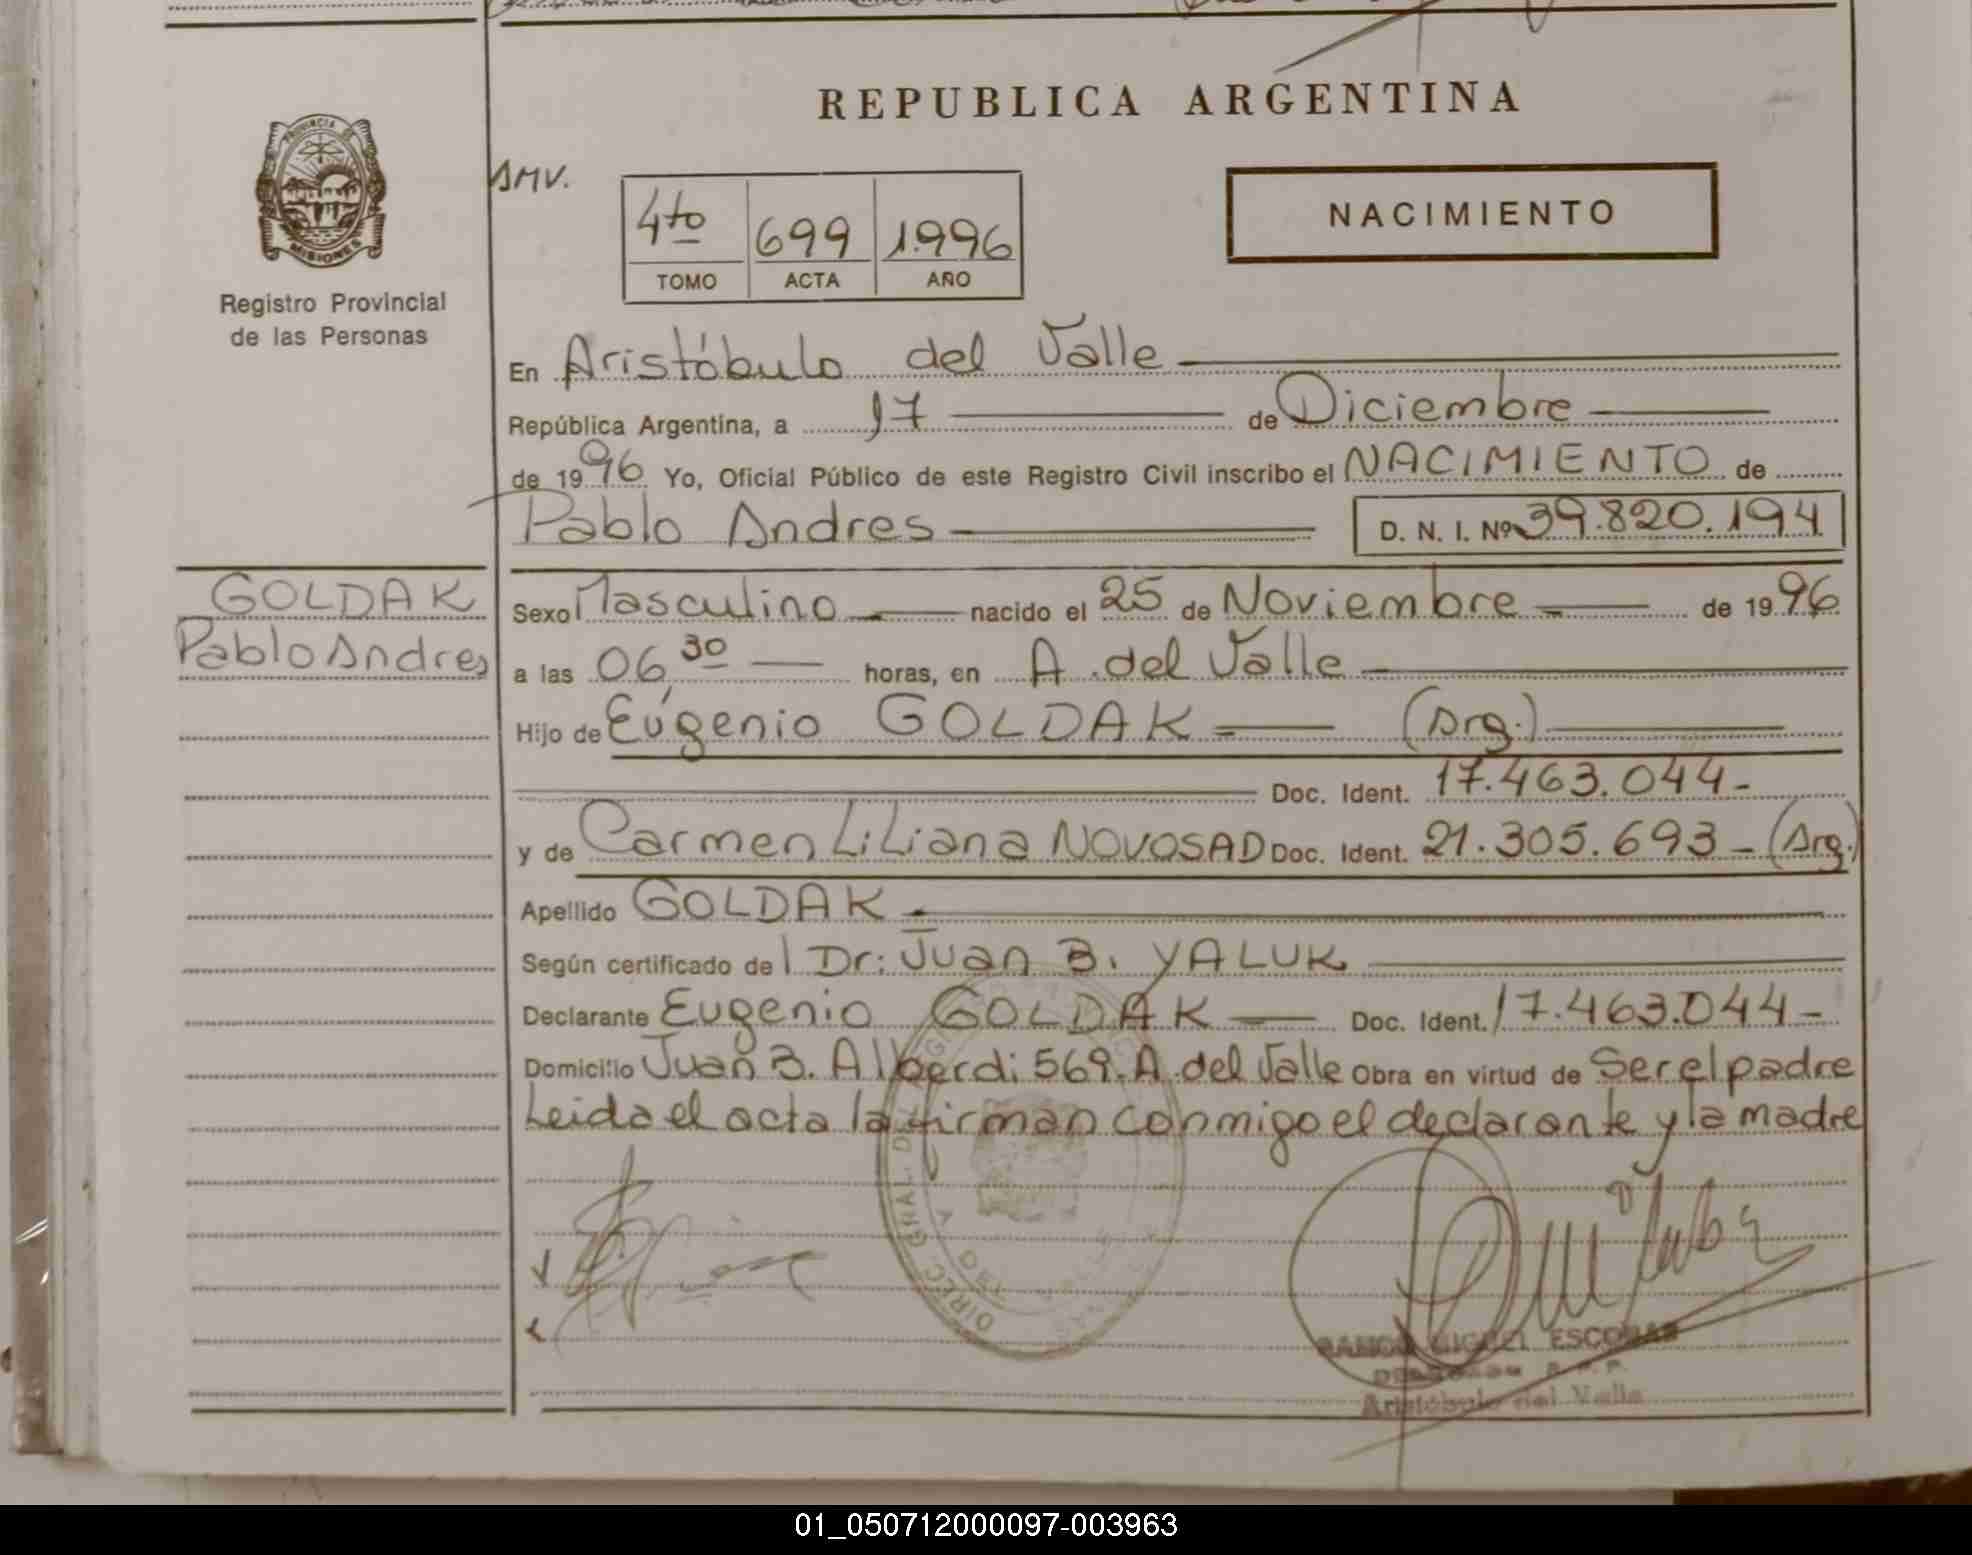 REPUBLICA ARGENTINA
PROVINCIA DE
MISIONES
Registro Provincial
de las Personas
AMV.
4to 699 1.996
TOMO ACTA AÑO
NACIMIENTO
En Aristóbulo del Valle
República Argentina, a 17 de Diciembre
de 1996 Yo, Oficial Público de este Registro Civil inscribo el NACIMIENTO de
Pablo Andres D. N. I. Nº 39.820.194
GOLDAK
Pablo Andres
Sexo Masculino nacido el 25 de Noviembre de 1996
a las 06,30 horas, en A. del Valle
Hijo de Eugenio GOLDAK (Arg.)
Doc. Ident. 17.463.044-
y de Carmen Liliana NOVOSAD Doc. Ident. 21.305.693- (Arg.)
Apellido GOLDAK
Según certificado del Dr: Juan B. YALUK
Declarante Eugenio GOLDAK Doc. Ident. 17.463.044-
Domicilio Juan B. Alberdi 569. A. del Valle Obra en virtud de Ser el padre
Leida el acta la firman conmigo el declarante y la madre
DIREC. GRAL. DEL REGISTRO
RAMON MIGUEL ESCOBAR
Aristóbulo del Valle
01_050712000097-003963